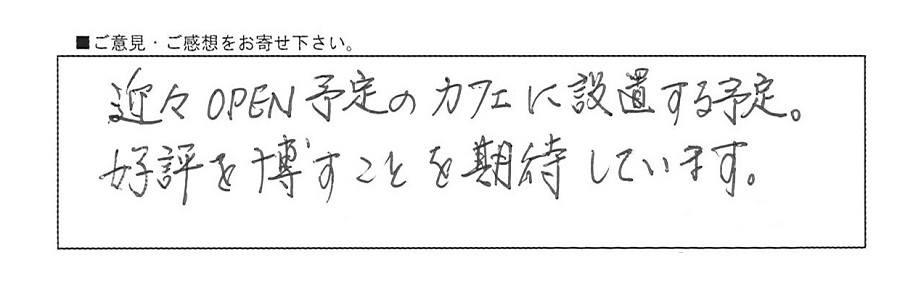 ■ご意見・ご感想をお寄せ下さい。
近々OPEN予定のカフェに設置する予定。
好評を博すことを期待しています。